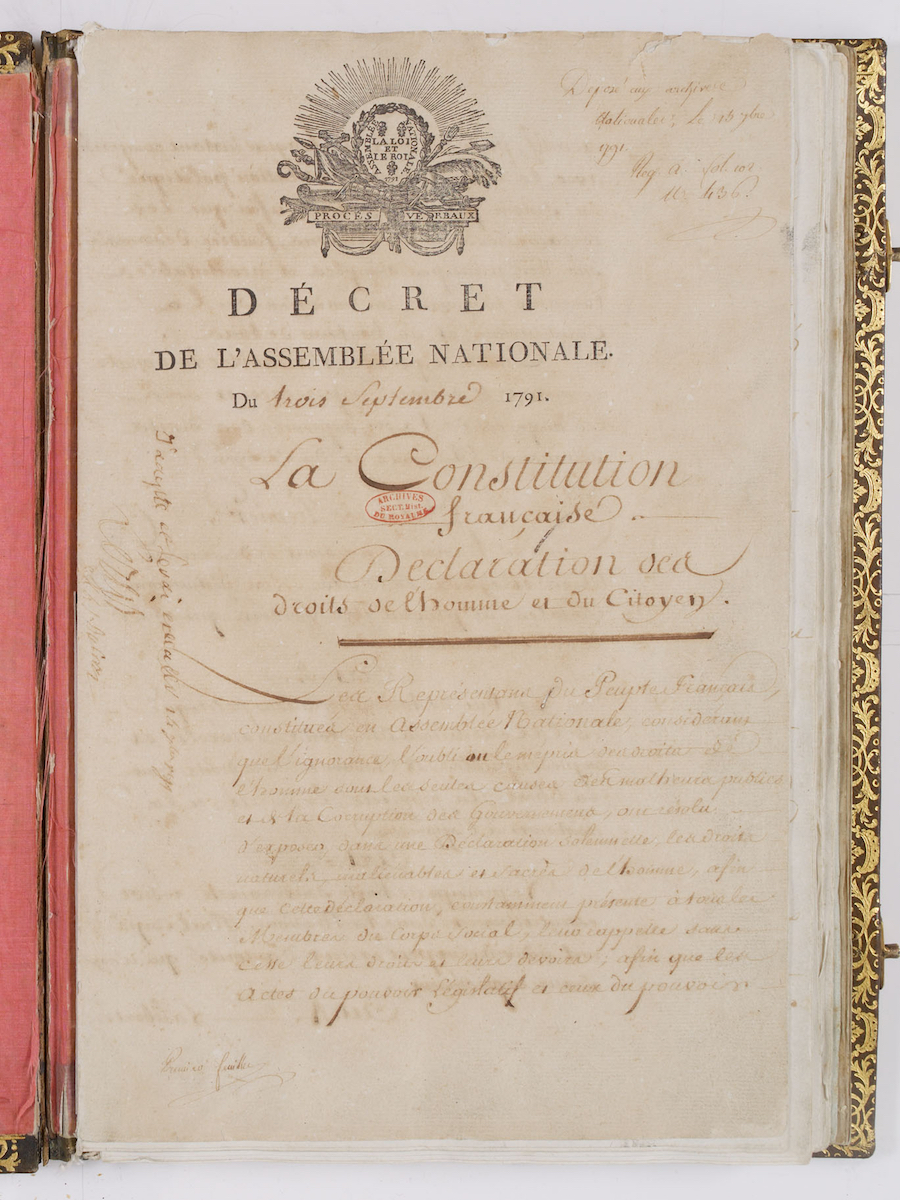 Déposé aux archives
Nationales, Le 15 7bre
1791.
Reg. A. fol. 102
N.º 436.
ASSEMBLÉE NATIONALE
LA LOI
ET
LE ROI
1791
PROCÈS VERBAUX
DÉCRET
DE L'ASSEMBLÉE NATIONALE.
Du trois Septembre 1791.
La Constitution
française.
ARCHIVES
SECT. HIST.
DU ROYAUME
Déclaration des
droits de l'homme et du Citoyen.
Les Représentans du Peuple Français,
constitués en Assemblée Nationale, considérant
que l'ignorance, l'oubli ou le mépris des droits de
l'homme sont les seules causes des malheurs publics
et de la Corruption des Gouvernemens, ont résolu
d'exposer dans une Déclaration solemnelle, les droits
naturels, inaliénables et sacrés de l'homme, afin
que cette déclaration, constamment présente à tous les
Membres du Corps Social, leur rappelle sans
cesse leurs droits et leurs devoirs; afin que les
Actes du pouvoir législatif et ceux du pouvoir
J'accepte et ferai exécuter 14 7bre 1791
Louis
Premier feuillet